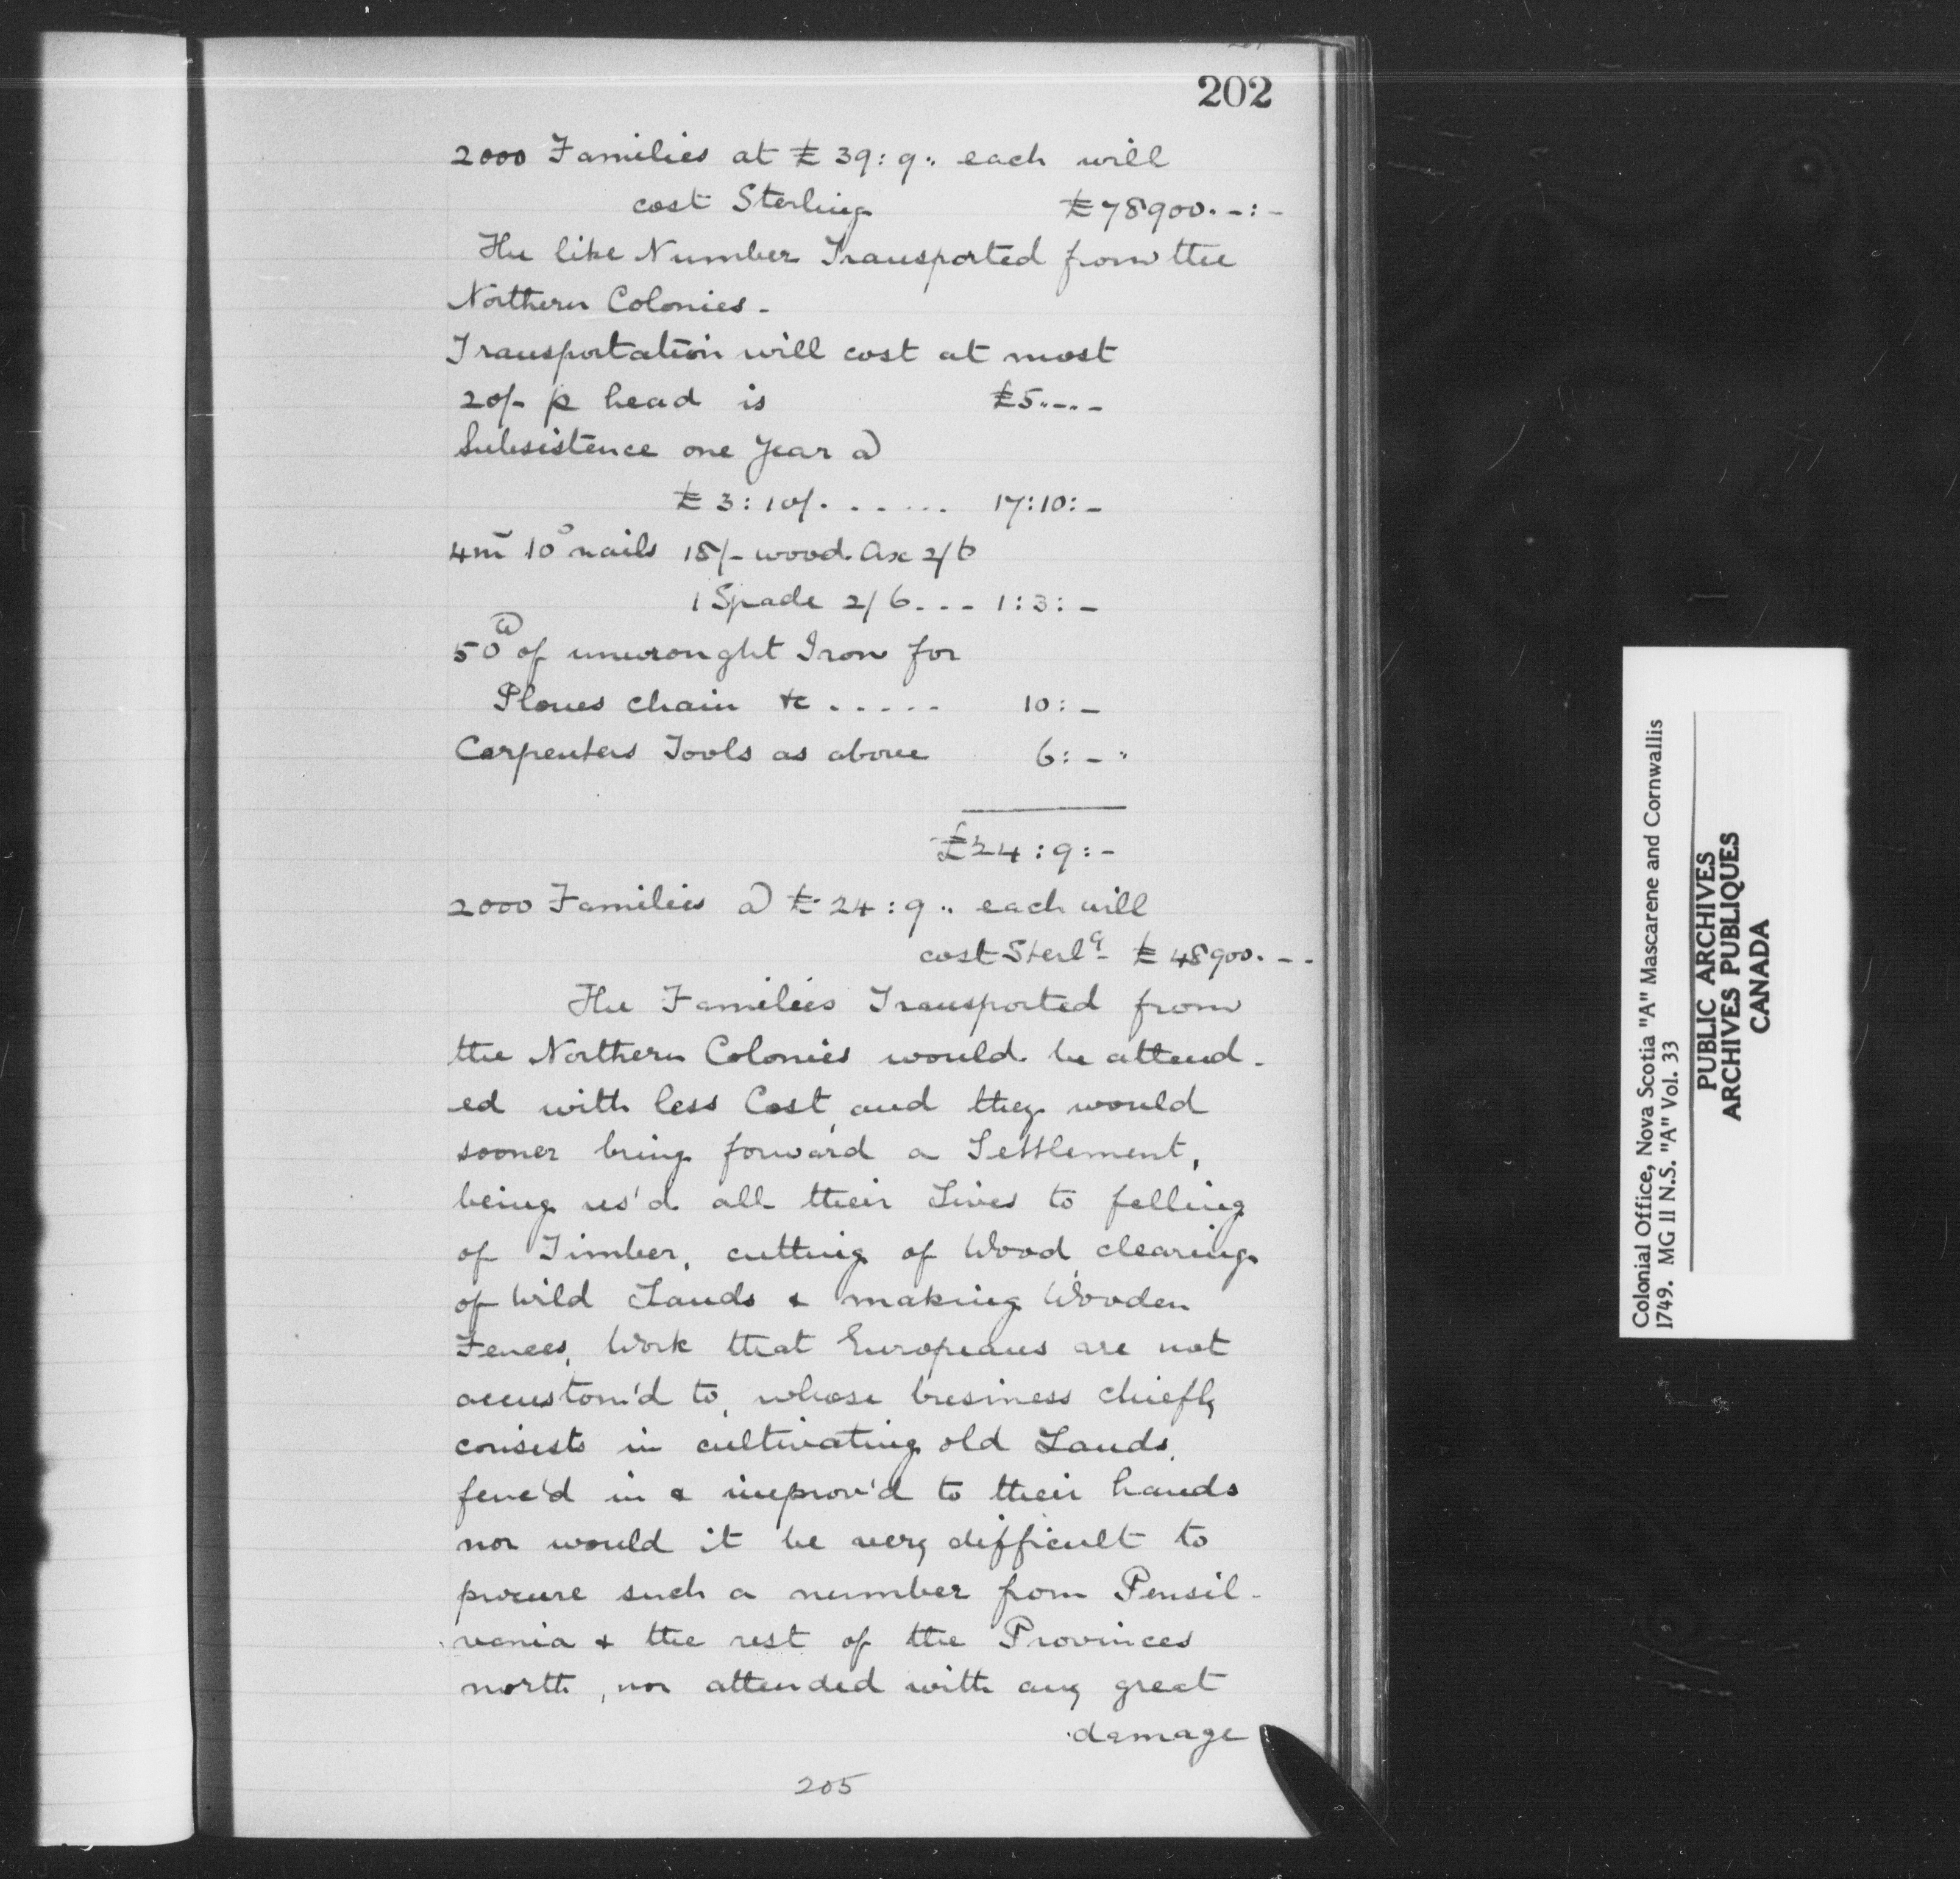 202
2000 Families at £39:9.. each will
cost Sterling £78900.-:-
The like Number Transported from the
Northern Colonies-
Transportation will cost at most
20/- p head is £5..-.-
Subsistence one Year @
£3:10/....... 17:10:-
4m 10d nails 18/- wood Ax 2/6
1 Spade 2/6... 1:3:-
50 of unwrought Iron for
Plows chain &c ..... 10:-
Carpenters Tools as above 6:-"
£24:9:-
2000 Families @ £24:9.. each will
cost Sterlg £48900.--
The Families Transported from
the Northern Colonies would be attend-
ed with less Cost, and they would
sooner bring forward a Settlement,
being us'd all their Lives to felling
of Timber, cutting of Wood, clearing
of Wild Lands & making Wooden
Fences, Work that Europeans are not
accustom'd to, whose business chiefly
consists in cultivating old Lands,
fenc'd in & improv'd to their hands
nor would it be very difficult to
procure such a number from Pensil-
vania & the rest of the Provinces
north, nor attended with any great
damage
205
Colonial Office, Nova Scotia "A" Mascarene and Cornwallis
1749. MG 11 N.S. "A" Vol. 33
PUBLIC ARCHIVES
ARCHIVES PUBLIQUES
CANADA